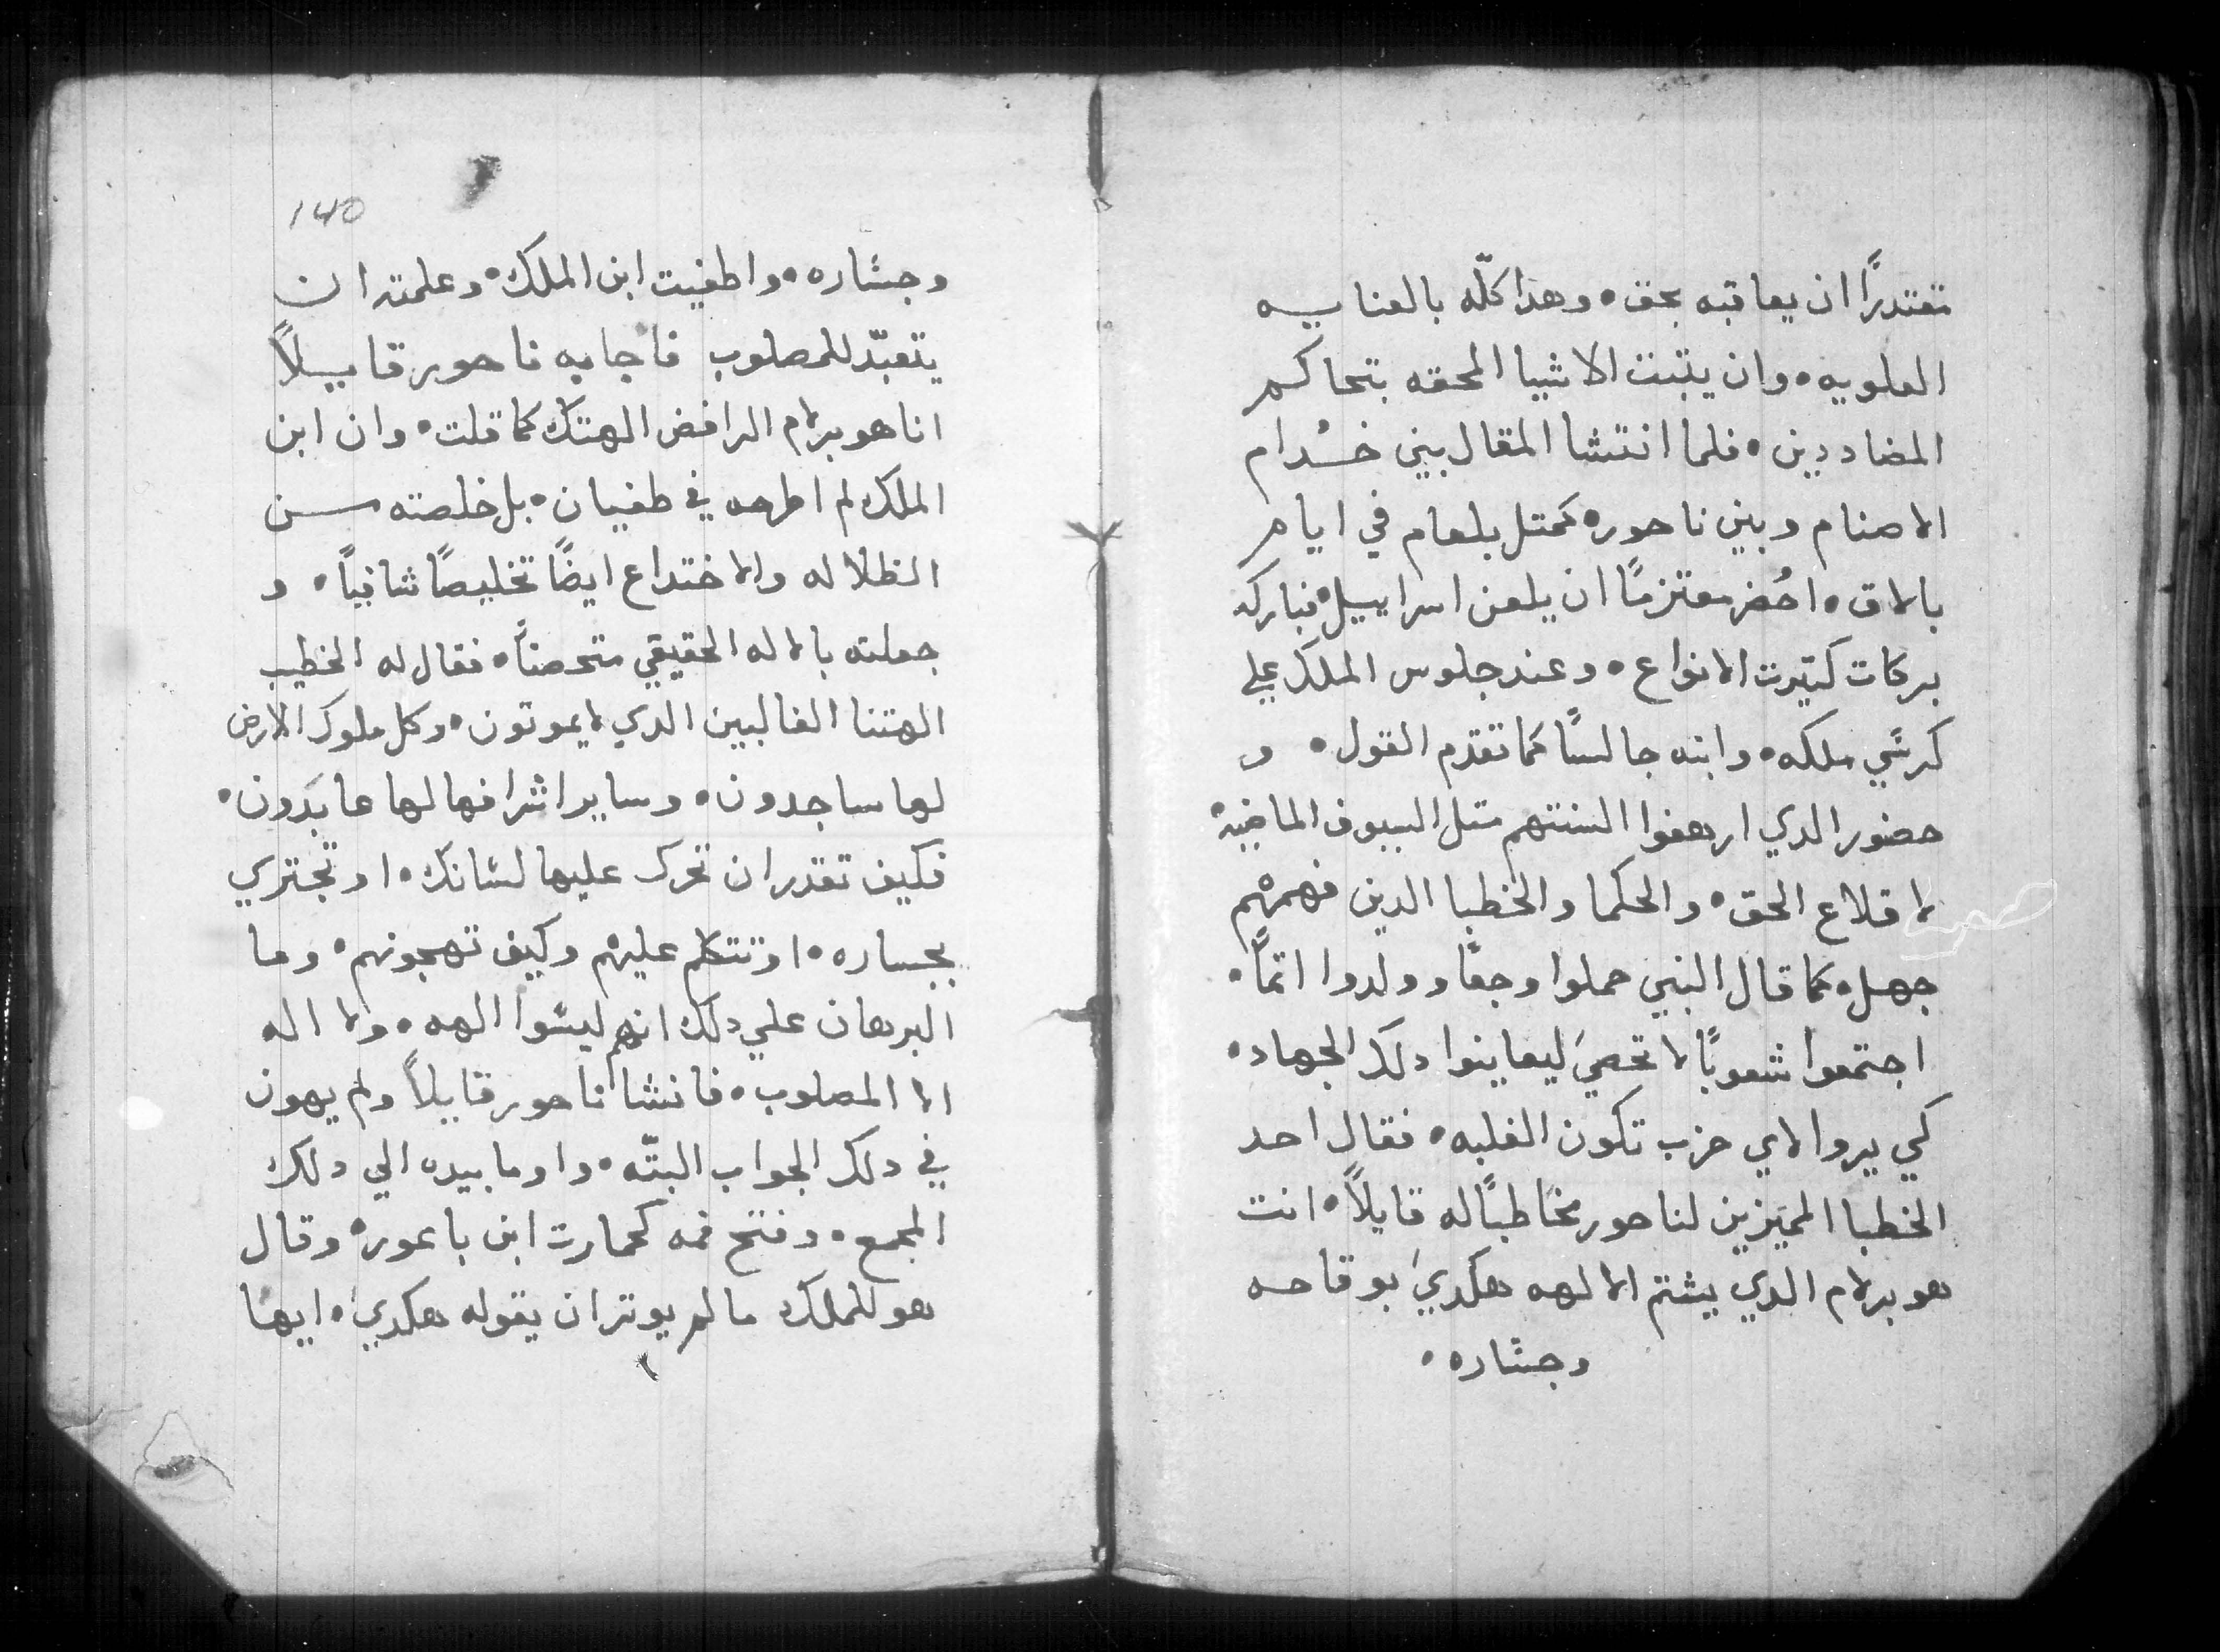 تقتدرًا ان يعاقبه بحق • وهذا كلّه بالعنايه
العلويه • وان يتبت الاشيا المحقه بتحاكم
المضاددين • فلما انتشا المقال بين خدام
الاصنام وبين ناحور • كمتل بلعام في ايام
بالاق • احُضر معتزمًا ان يلعن اسراييل • فباركه
بركات كتيرت الانواع • وعند جلوس الملك علي
كرسي ملكه • وابنه جالسًا كما تقدم القول • و
حضور الدي ارهفوا السنتهم متل السيوف الماضية
لاقلاع الحق • والحكما والخطبا الدين فهمهم
جهل • كما قال النبي حملوا وجعًا وولدوا اتمًا •
اجتمعوا شعوبًا لا تحصي ليعاينوا دلك الجهاد •
كي يروا لاي حزب تكون الغلبه • فقال احد
الخطبا المميزين لناحور مخاطبًا له قايلاً • انت
هو برلام الدي يشتم الالهه هكدي بوقاحه
وجساره •
140
وجساره • واطغيت ابن الملك • وعلمته ان
يتعبّد للمصلوب فاجابه ناحور قايلاً
انا هو برلام الرافض الهتك كما قلت • وان ابن
الملك لم اطرحه في طغيان • بل خلصته من
الظلاله والاختداع ايضًا تخليصًا شافيًا • و
جعلته بالاله الحقيقي متحصنًا • فقال له الخطيب
الهتنا الغالبين الدي لا يموتون • وكل ملوك الارض
لها ساجدون • وساير اشرافها لها عابدون •
فكيف تقدر ان تحرك عليها لسانك • او تجتري
بجساره • او تتكلم عليهم وكيف تهجونهم • وما
البرهان علي دلك انهم ليسوا الهه • ولا اله
الا المصلوب • فانشا ناحور قايلاً ولم يهون
في دلك الجواب البتّه • واوما بيده الي دلك
المجمع • وفتح فمه كحمارت ابن باعور • وقال
هو للملك ما لم يوتر ان يقوله هكدي • ايها